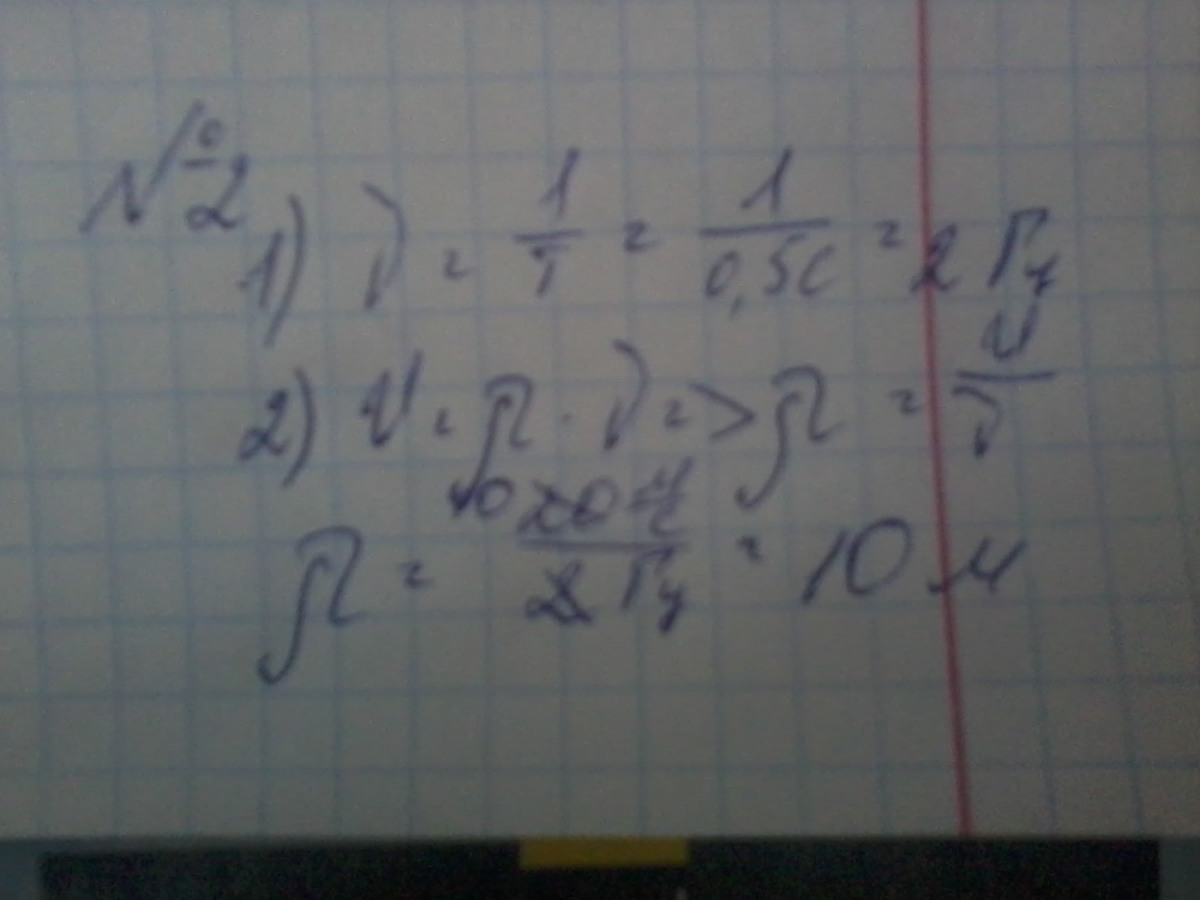 №2
1) ν = 1/T = 1/0,5с = 2 Гц
2) υ = λ · ν => λ = υ/ν
λ = 20 м/с / 2 Гц = 10 м